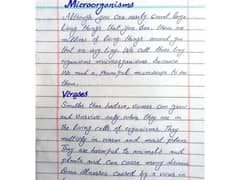 Microorganisms
Although you can easily count large
living things that you see. there are
millions of living things around you
that are very tiny. We call these tiny
organisms microorganisms because
We need a powerful microscope to see
them.
Viruses
Smaller than bacteria, viruses can grow
and survive only when they are in
the living cells of organisms. They
multiply in warm and moist places
They are harmful to animals and
plants and can cause many diseases
Some illnesses caused by a virus in